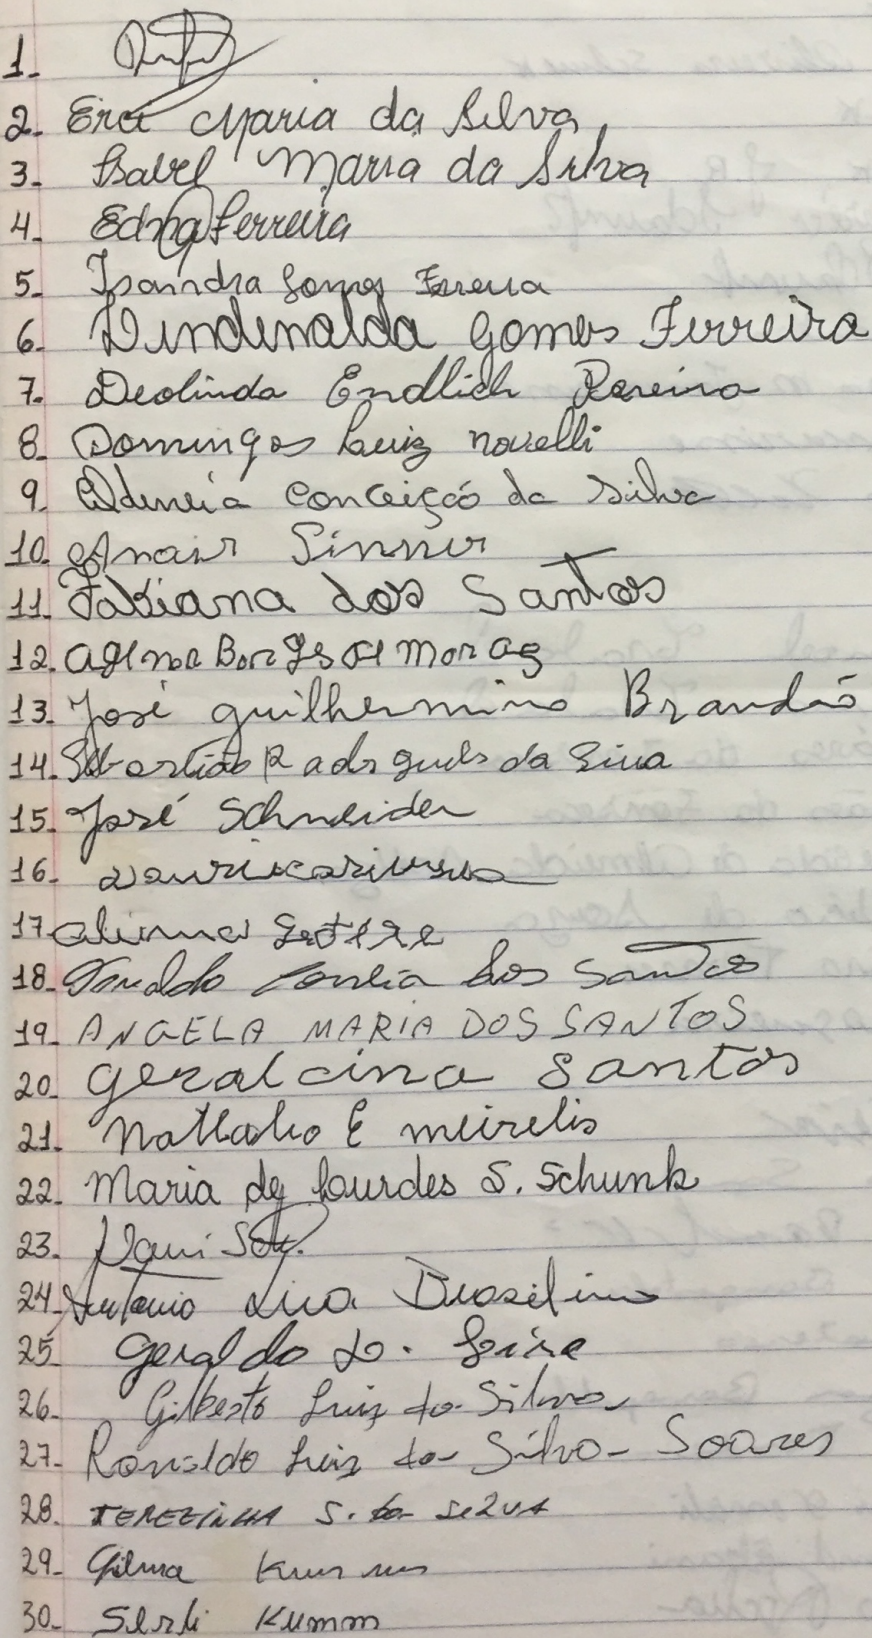 1.
2. Erci Maria da Silva
3. Isabel Maria da Silva
4. Edna Ferreira
5. Isandra Gomes Ferreira
6. Dindinalda Gomes Ferreira
7. Deolinda Endlich Pereira
8. Domingos Luiz novelli
9. Conceição da Silva
10. Anair Sinner
11. Fabiana dos Santos
12. agenor Borges de Moraes
13. José guilhermino Brandão
14. Sebastião Rodrigues da Silva
15. José Schneider
16.
17.
18. dos Santos
19. ANGELA MARIA DOS SANTOS
20. geralcina Santos
21. E meirelis
22. Maria de Lourdes S. Schunk
23. Davi
24. Antonio
25. geraldo
26. Gilberto Luiz da Silva
27. Ronaldo Luiz da Silva Soares
28. TEREZINHA S. da SILVA
29. Gilma
30. Serli Kumm